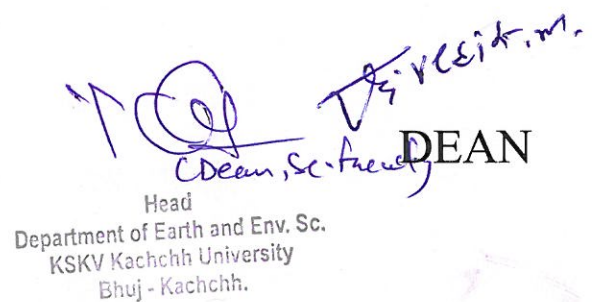 (Dean, Sc. faculty
DEAN
Head
Department of Earth and Env. Sc.
KSKV Kachchh University
Bhuj - Kachchh.